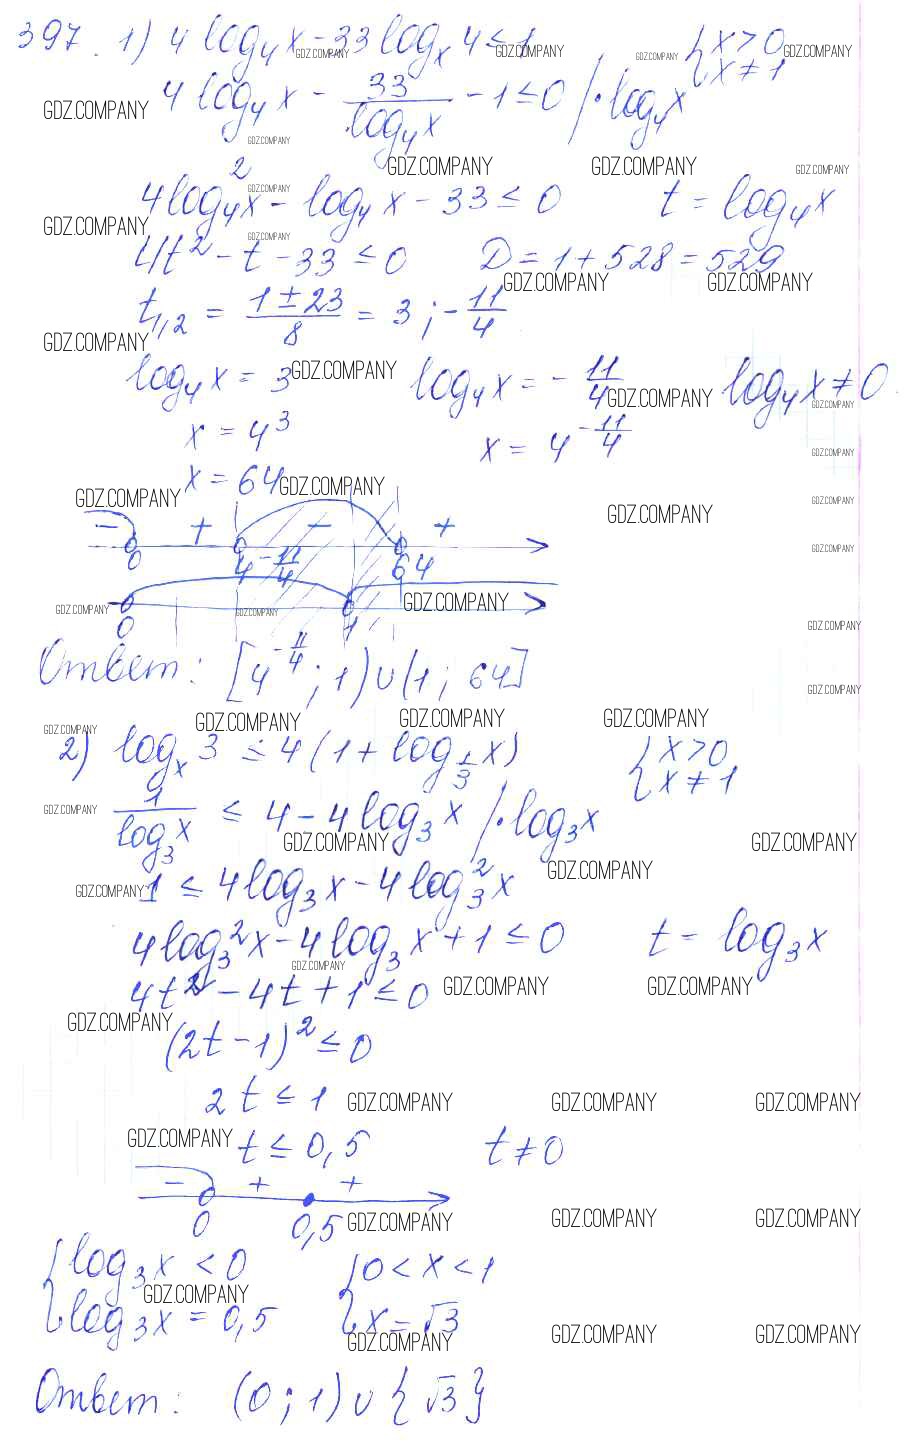 397. 1) 4 log₄x - 33 logₓ 4 ≤ 1 { x > 0
{ x ≠ 1
4 log₄x - 33/log₄x - 1 ≤ 0 / · log₄x
4 log₄²x - log₄x - 33 ≤ 0 t = log₄x
4t² - t - 33 ≤ 0 D = 1 + 528 = 529
t₁,₂ = (1 ± 23)/8 = 3 ; - 11/4
log₄x = 3 log₄x = - 11/4 log₄x ≠ 0
x = 4³ x = 4^(-11/4)
x = 64
- + - +
0 4^(-11/4) 64
0 1
Ответ: [4^(-11/4) ; 1) ∪ (1 ; 64]
2) logₓ 3 ≤ 4 (1 + log_(1/3) x) { x > 0
{ x ≠ 1
1/log₃x ≤ 4 - 4 log₃x / · log₃x
1 ≤ 4 log₃x - 4 log₃²x
4 log₃²x - 4 log₃x + 1 ≤ 0 t = log₃x
4t² - 4t + 1 ≤ 0
(2t - 1)² ≤ 0
2t ≤ 1
t ≤ 0,5 t ≠ 0
- + +
0 0,5
{ log₃x < 0 { 0 < x < 1
{ log₃x = 0,5 { x = √3
Ответ: (0 ; 1) ∪ {√3}
GDZ.COMPANY